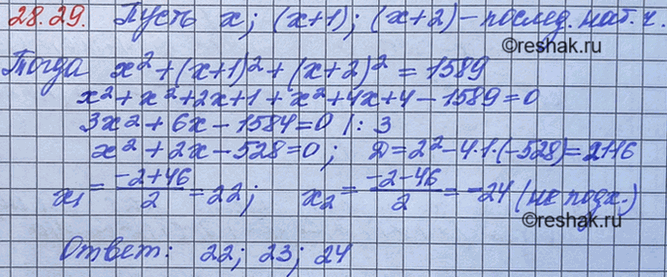 28.29. Пусть x; (x+1); (x+2) – послед. нат. ч.
©reshak.ru
Тогда x² + (x+1)² + (x+2)² = 1589
x² + x² + 2x + 1 + x² + 4x + 4 – 1589 = 0
3x² + 6x – 1584 = 0 |: 3
x² + 2x – 528 = 0; Д = 2² – 4·1·(–528) = 2116
x₁ = (–2+46)/2 = 22; x₂ = (–2–46)/2 = –24 (не подх.)
Ответ: 22; 23; 24
©reshak.ru